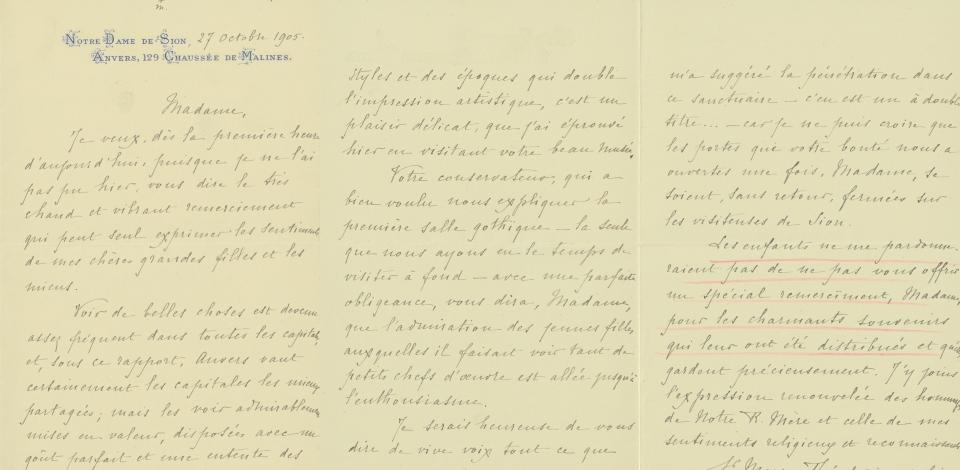 m.
NOTRE DAME DE SION, 27 Octobre 1905.
ANVERS, 129 CHAUSSÉE DE MALINES.
Madame,
Je veux, dès la première heure
d'aujourd'hui, puisque je ne l'ai
pas pu hier, vous dire le très
chaud et vibrant remerciement
qui peut seul exprimer les sentiments
de mes chères grandes filles et les
miens.
Voir de belles choses est devenu
assez fréquent dans toutes les capitales
et, sous ce rapport, Anvers vaut
certainement les capitales les mieux
partagées; mais les voir admirablement
mises en valeur, disposées avec un
goût parfait et une entente des
styles et des époques qui double
l'impression artistique, c'est un
plaisir délicat, que j'ai éprouvé
hier en visitant votre beau musée.
Votre conservateur, qui a
bien voulu nous expliquer la
première salle gothique — la seule
que nous ayons eu le temps de
visiter à fond — avec une parfaite
obligeance, vous dira, Madame,
que l'admiration des jeunes filles
auxquelles il faisait voir tant de
petits chefs d'œuvre est allée jusqu'à
l'enthousiasme.
Je serais heureuse de vous
dire de vive voix tout ce que
m'a suggéré la pénétration dans
ce sanctuaire — c'en est un à double
titre... — car je ne puis croire que
les portes que votre bonté nous a
ouvertes une fois, Madame, se
soient, sans retour, fermées sur
les visiteuses de Sion.
Les enfants ne me pardonne-
raient pas de ne pas vous offrir
un spécial remercîment, Madame,
pour les charmants souvenirs
qui leur ont été distribués et qu'elles
gardent précieusement. J'y joins
l'expression renouvelée des hommages
de Notre R. Mère et celle de mes
sentiments religieux et reconnaissants